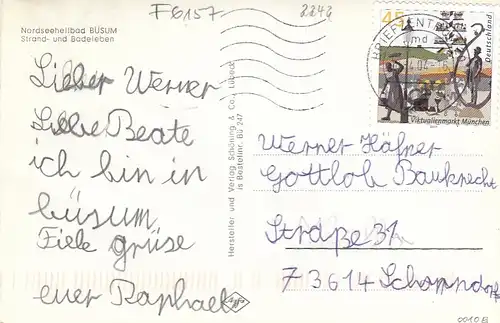 Nordseeheilbad BÜSUM
Strand- und Badeleben
F6157
2242
Lieber Werner
Liebe Beate
ich bin in
büsum
Fiele grüse
euer Raphael
Hersteller und Verlag Schöning & Co., Lübeck
Bestellnr. Bü 247
45
Deutschland
BRIEFZENTR
Viktualienmarkt München
Werner Häfner
Gottlob Bauknecht
Straße 31
73614 Schorndorf
0010B